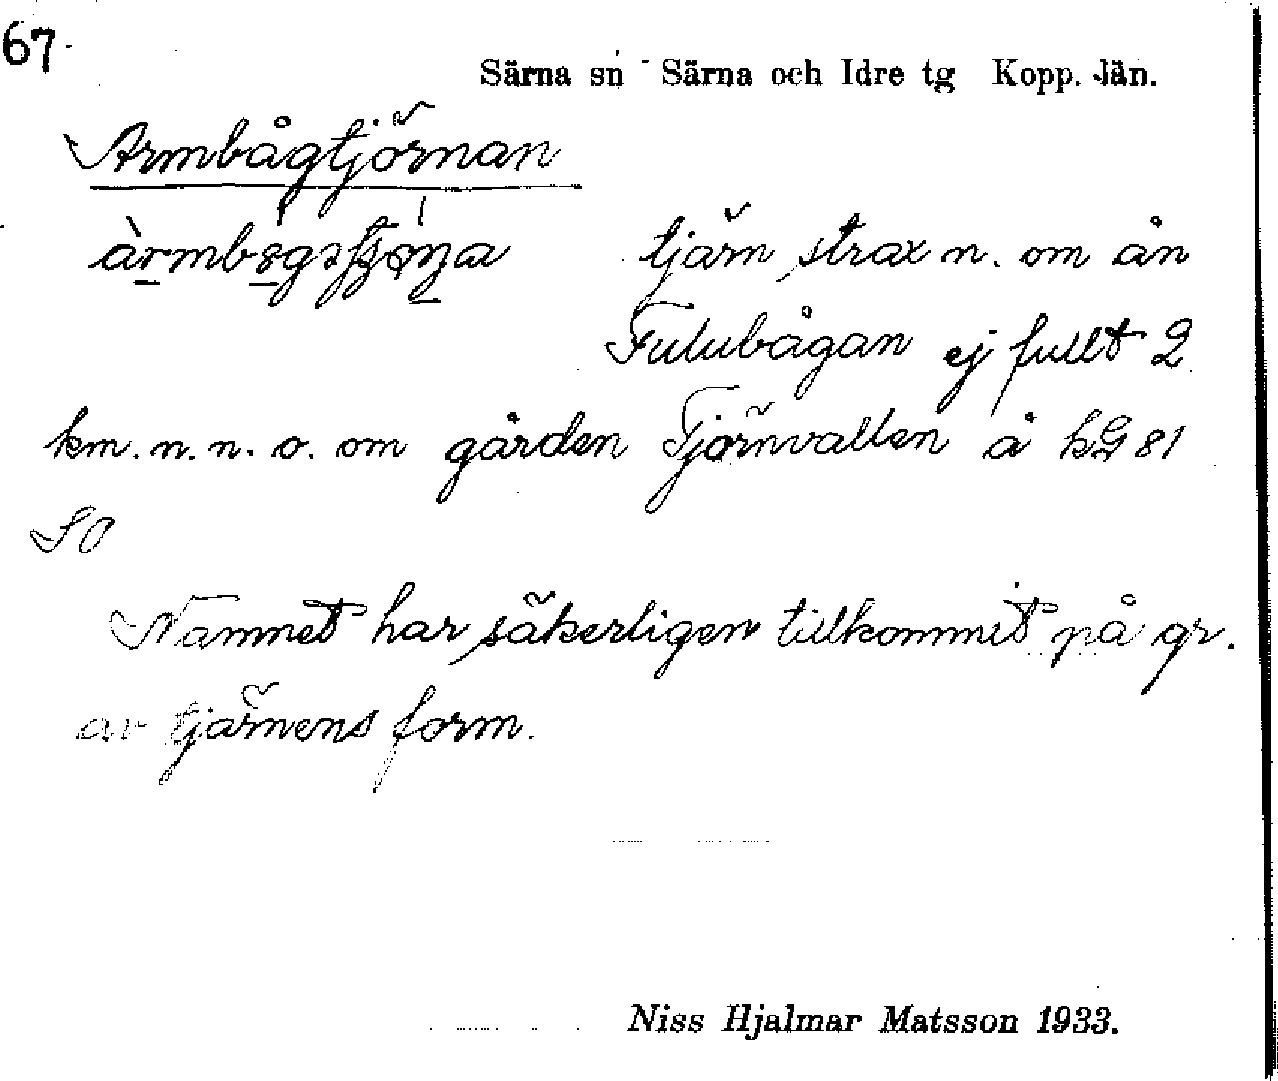 67
Särna sn Särna och Idre tg Kopp. län.
Armbågtjörnan
tjärn strax n. om ån
Fulubågan ej fullt 2
km. n. n. o. om gården Tjörnvallen å kG 81
SO
Namnet har säkerligen tillkommit på gr.
av tjärnens form.
Niss Hjalmar Matsson 1933.